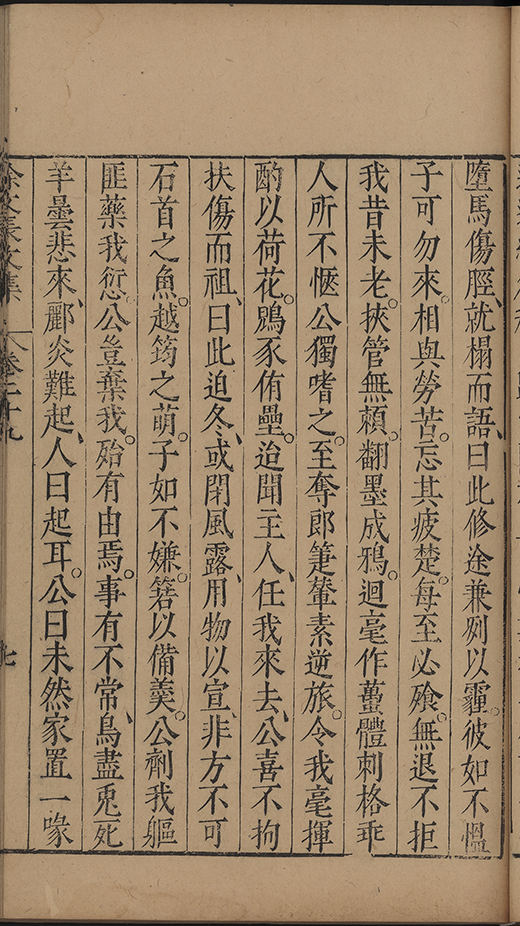 墮馬傷脛、就榻而語、曰此修途兼剡以霾。彼如不慍
子可勿來。相與勞苦。忘其疲楚。每至必飱。無退不拒
我昔未老。挾管無賴。翻墨成鴉。迴毫作薑體刺格乖
人所不愜公獨嗜之。至奪郎箑輦素逆旅。令我毫揮
酌以荷花。鵝豕侑罍。迨聞主人、任我來去、公喜不拘
扶傷而祖、曰此迫冬、或閉風露、用物以宣、非方不可
石首之魚。越筠之萌。子如不嫌。簭以備羹。公劑我軀
匪藥我愆。公豈棄我。殆有由焉。事有不常、鳥盡兎死
羊曇悲來、酈炎難起、人曰起耳。公曰未然家置一喙
徐文長文集
卷二十九
七